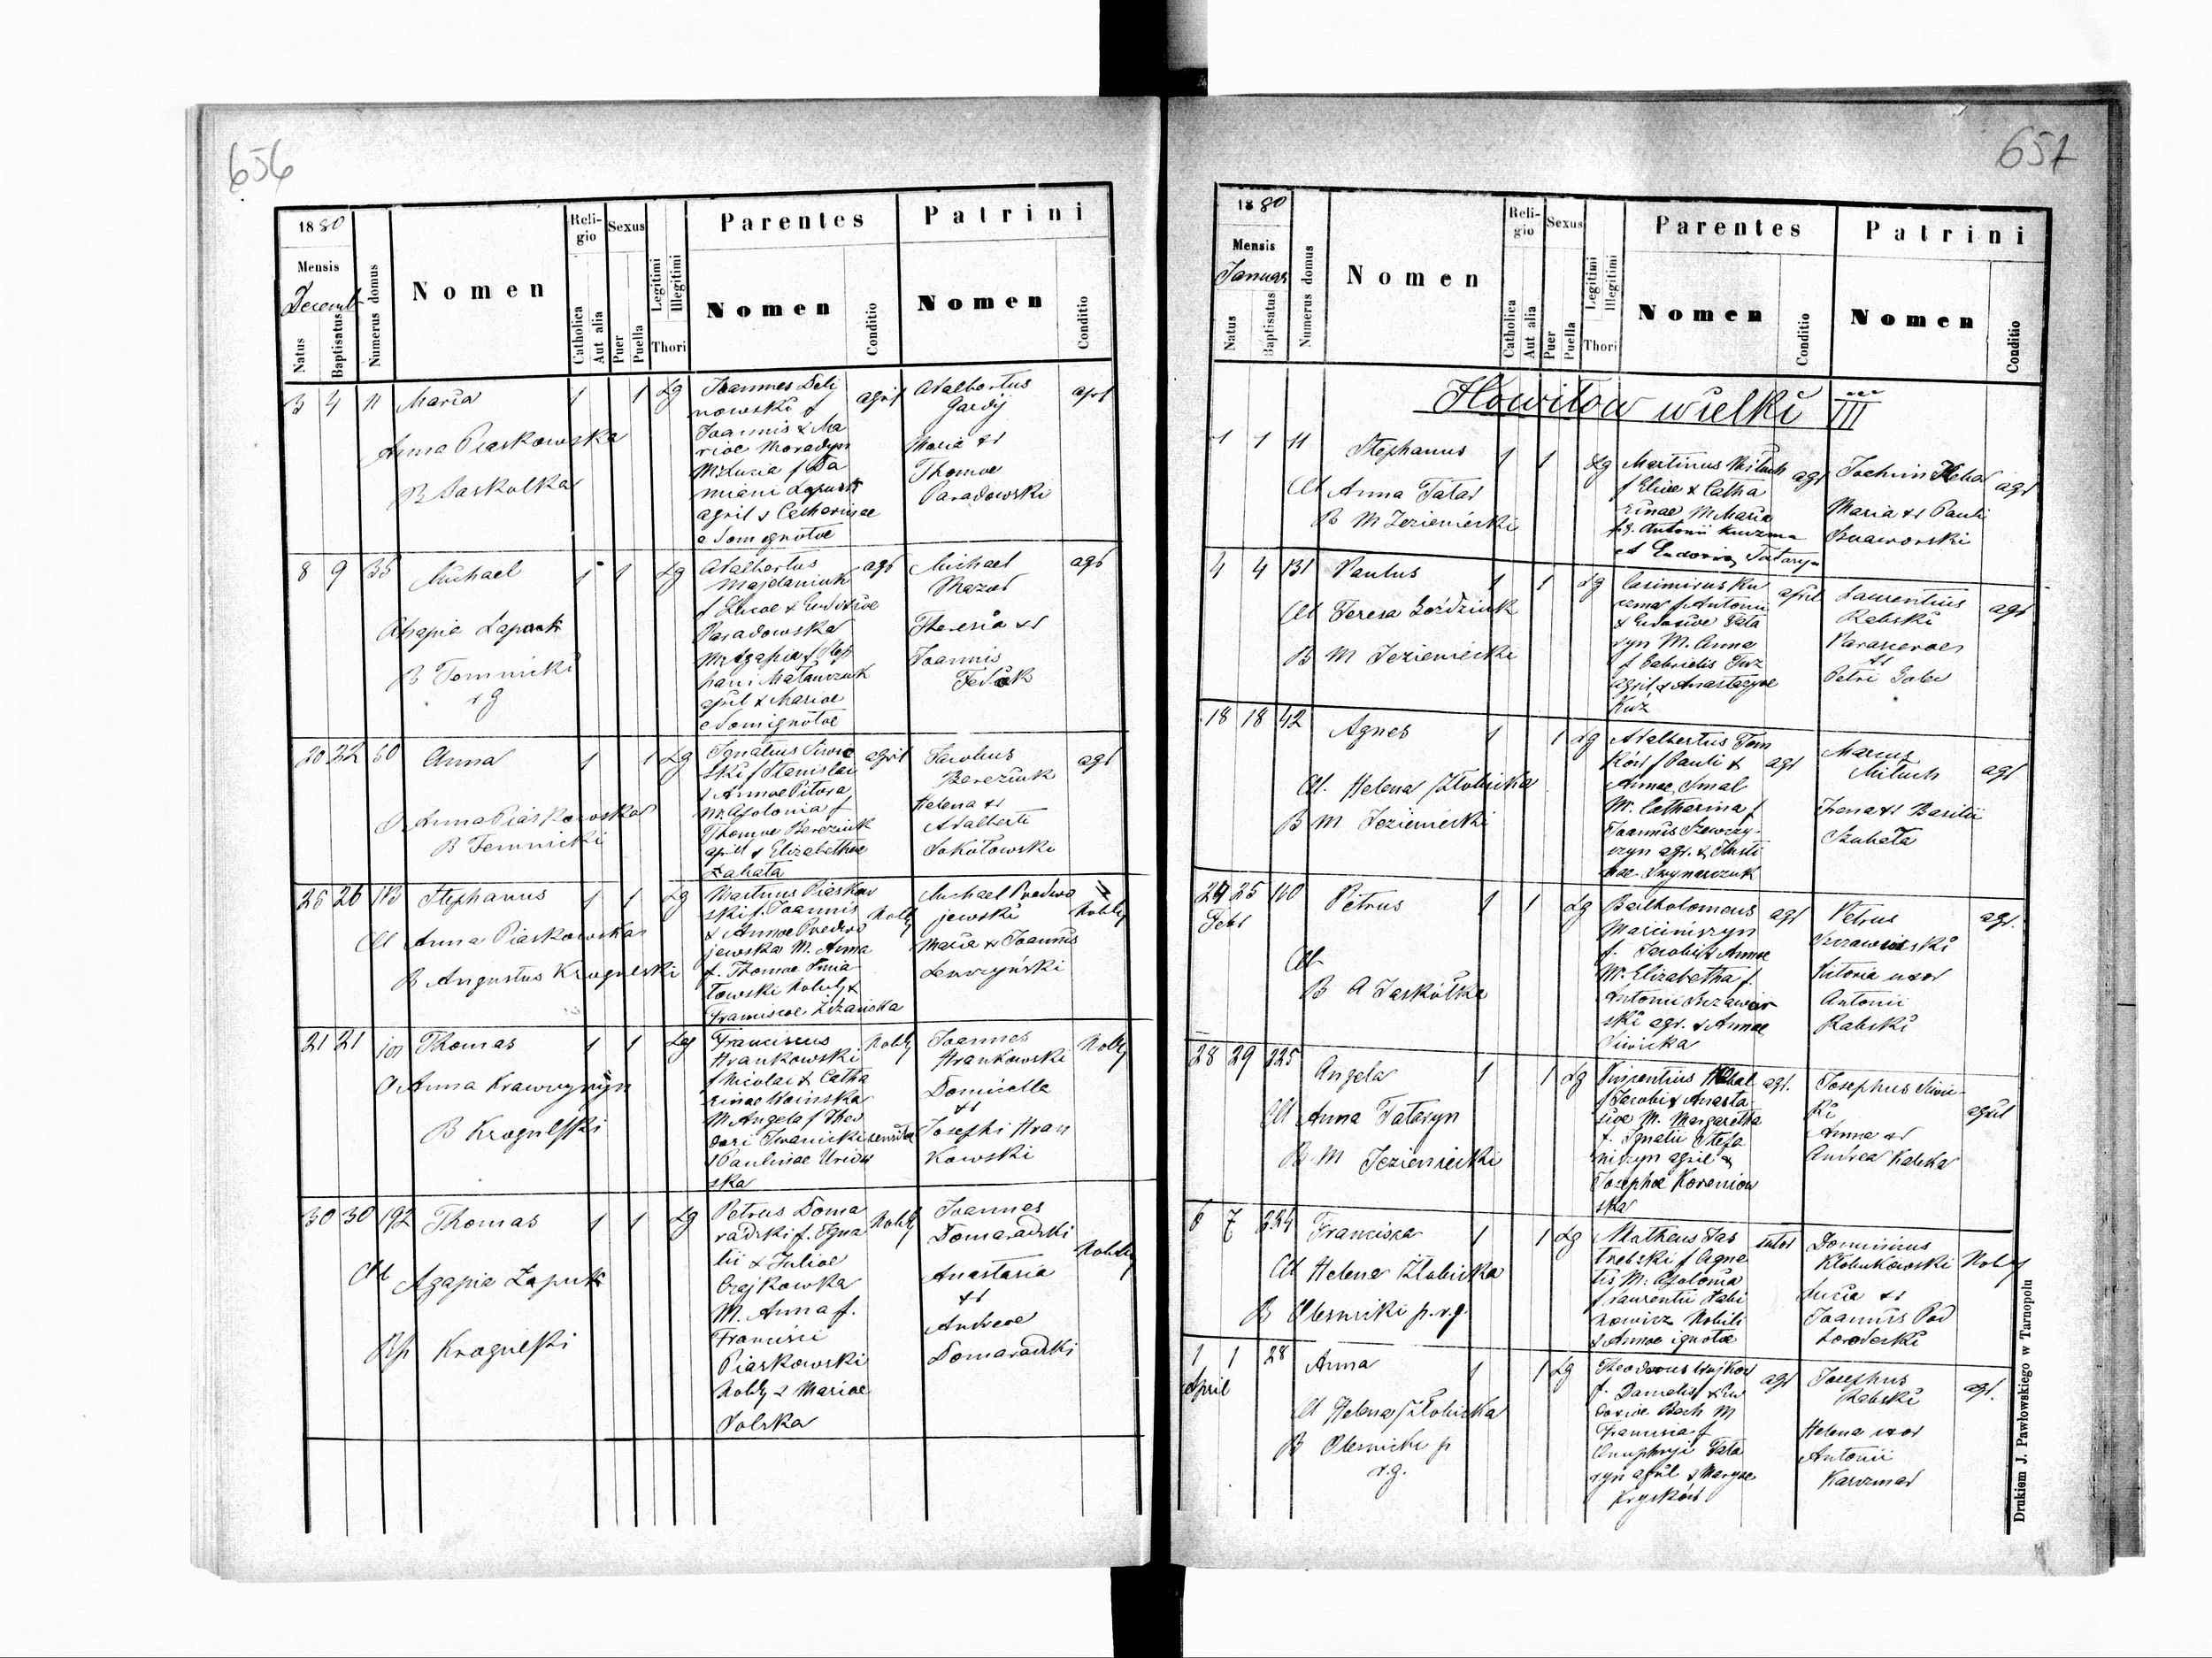 656
1880
Mensis
Decemb
Natus
Baptisatus
Numerus domus
Nomen
Religio
Catholica
Aut alia
Sexus
Puer
Puella
Legitimi
Illegitimi
Thori
Parentes
Nomen
Conditio
Patrini
Nomen
Conditio
3 4 11 Maria 1 1 Lg
Anna Piaskowska
B Jaskolka
Joannes Deli
nowski f
Joannis & Ma
riae Moradyn
M Luzia f Da
miani Lapuk
agril & Catharinae
e Dom ignotae
agril
Adalbertus
Gardij
Maria ux
Thomae
Paradowski
agr
8 9 35 Michael 1 1 Lg
Ahapia Lapuk
B Temnicki
rg
Adalbertus
Majdaniuk
f Lucae & Eudoxiae
Paradowska
M Agapia f Step
hani Matawczuk
agril & Mariae
e Dom ignotae
agr
Michael
Mazur
Theresia ux
Joannis
Fedak
agr
20 22 50 Anna 1 1 Lg
O Anna Piaskowska
B Temnicki
Ignatius Siwic
ski f Stanislai
& Annae Pitura
M. Apolonia f
Thomae Bereziuk
agril & Elizabethae
Zahata
agril
Jacobus
Bereziuk
Helena ux
Adalberti
Sokołowski
agr
26 26 113 Stephanus 1 1 Lg
Ob Anna Piaskowska
B Augustus Krogulski
Martinus Piaskow
ski f. Joannis
& Annae Predwo
jewska M. Anna
f. Thomae Smia
towski Nobily &
Franciscae Liżańska
Nobly
Michael Predwo
jewski
Maria & Joannis
Lewczyński
Nobly
21 21 101 Thomas 1 1 Lg
O Anna Krawczyszyn
B Krogulski
Franciscus
Hrankowski
f Nicolai & Catha
rinae Woinska
M Angela f Theo
dori Iwanicki
& Paulinae Uniow
ska
Nobly
Joannes
Hrankowski
Domicella
ux
Josephi Hran
kowski
Nobly
30 30 192 Thomas 1 1 Lg
Ob Agapia Lapuk
Bp Krogulski
Petrus Doma
radzki f. Igna
tii & Juliae
Czajkowska
M. Anna f.
Francisci
Piaskowski
Nobly & Mariae
Solska
Nobly
Joannes
Domaradzki
Anastasia
ux
Andreae
Domaradzki
Nobly
657
1880
Mensis
Januar
Natus
Baptisatus
Numerus domus
Nomen
Religio
Catholica
Aut alia
Sexus
Puer
Puella
Legitimi
Illegitimi
Thori
Parentes
Nomen
Conditio
Patrini
Nomen
Conditio
Howilow wielki III
1 1 11 Stephanus 1 1 Lg
Ob Anna Tatar
B M Jezienicki
Martinus Mituch
f Eliae & Catha
rinae M Maria
f. Antonii Kuczma
et Eudoxia Tataryn
agr
Jochim Hebal
Maria ux Pauli
agr
4 4 131 Paulus 1 1 Lg
Ob Teresa Goździuk
B M Jezienicki
Casimirus Ku
f Antonii
& Eudoxiae Tata
ryn M. Anna
f Gabrielis
agril & Anastazyae
Kuź
agril
Laurentius
Rabski
Parascewa
ux
Petri
agr
18 18 42 Agnes 1 1 Lg
Ob. Helena Złobicka
B M Jezienicki
Adalbertus Tom
ków f Pauli &
Annae Smal
M. Catharina f
Joannis Szewczy
szyn agr. & Justi
nae
agr
Marcus
Mituch
Irena ux Basilii
Szuhata
agr
24 25 110 Petrus 1 1 Lg
Febr
Ob
B A Jaskólka
Bartholomeus
Marciniszyn
f. Jacobi & Annae
M. Elizabetha f.
Antonii Szczawin
ski agr. & Annae
Siwicka
agr
Petrus
Szczawinski
Victoria uxor
Antonii
Rabski
agr.
28 29 225 Angela 1 1 Lg
Ob Anna Tataryn
B M Jezienicki
Vincentius Hebal
f Jacobi & Anasta
siae M. Margaretha
f. Ignatii Stefa
niszyn agril &
Josepha Koreniow
ska
agr.
Josephus Siwic
ki
Anna ux
Andrea Kaleka
agril
6 7 224 Francisca 1 1 Lg
Ob Helena Złobicka
B Olesnicki p.r.g.
Matheus Jas
trebski f Agne
tis M. Apolonia
f Laurentii Rabi
nowicz Nobili
& Annae ignotae
sutor
Dominicus
Kłobukowski
Luzia ux
Joannis Pod
horodecki
Nobly
1 1 28 Anna 1 1 Lg
April
Ob Helena Złobicka
B Olesnicki p
r.g.
Theodorus Wujkow
f. Danielis & Eu
doxiae Bach M
Francisca f
Onuphryi Tata
ryn agril & Maryae
Kryśków
agr
Josephus
Rabski
Helena uxor
Antonii
Karczmar
agr.
Drukiem J. Pawłowskiego w Tarnopolu